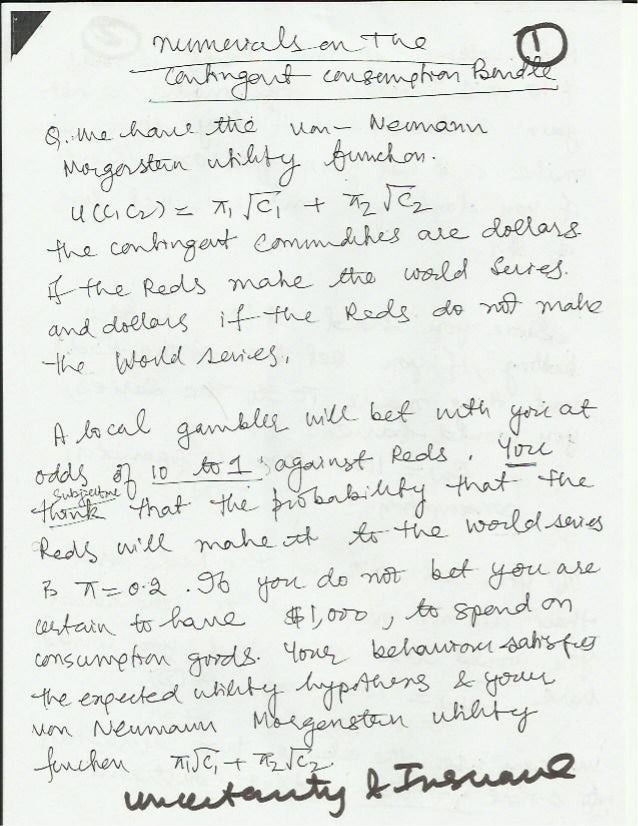 numericals on the
①
Contingent consumption Bundle
Q. We have the von-Neumann
Morgerstern utility function.
U(C₁ C₂) = π₁ √C₁ + π₂ √C₂
the contingent commodities are dollars
if the Reds make the world Series.
and dollars if the Reds do not make
the World series.
A local gambler will bet with you at
odds of 10 to 1 ; against Reds. You
subjective
think that the probability that the
Reds will make it to the world series
is π = 0.2 . If you do not bet you are
certain to have $1,000, to spend on
consumption goods. Your behaviour satisfies
the expected utility hypothesis & your
von Neumann Morgenstern utility
function π₁√C₁ + π₂√C₂
uncertainty & Insurance